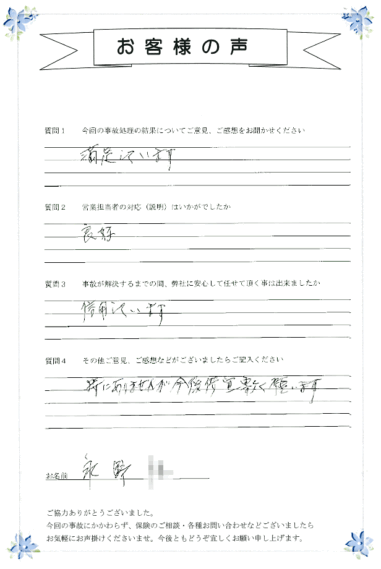 お客様の声
質問1 今回の事故処理の結果についてご意見、ご感想をお聞かせください
満足しています
質問2 営業担当者の対応（説明）はいかがでしたか
良好
質問3 事故が解決するまでの間、弊社に安心して任せて頂く事は出来ましたか
信用しています
質問4 その他ご意見、ご感想などがございましたらご記入ください
特にありませんが今後共宜敷く願います
お名前 永野
ご協力ありがとうございました。
今回の事故にかかわらず、保険のご相談・各種お問い合わせなどございましたら
お気軽にお声掛けくださいませ。今後ともどうぞ宜しくお願い申し上げます。